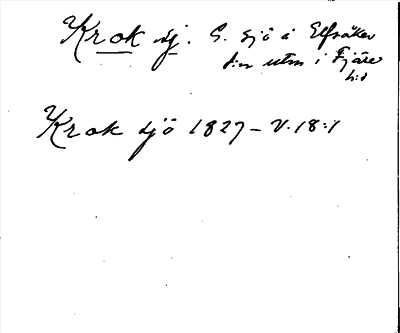 Krok sj. G. sjö i Elfsåker
s:n utm i Fjäre
h:d
Krok sjö 1827 – V. 18:1